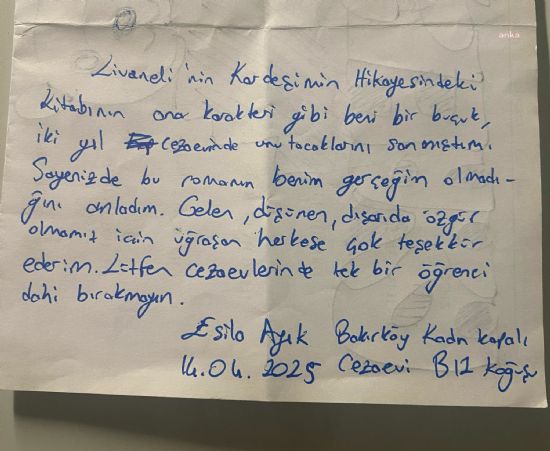 anka
Livaneli'nin Kardeşimin Hikayesindeki
kitabının ana karakteri gibi beni bir buçuk,
iki yıl cezaevinde unutacaklarını sanmıştım.
Sayenizde bu romanın benim gerçeğim olmadı-
ğını anladım. Gelen, düşünen, dışarıda özgür
olmamız için uğraşan herkese çok teşekkür
ederim. Lütfen cezaevlerinde tek bir öğrenci
dahi bırakmayın.
Esila Ayık Bakırköy Kadın kapalı
14.04.2025 Cezaevi B12 koğuşu